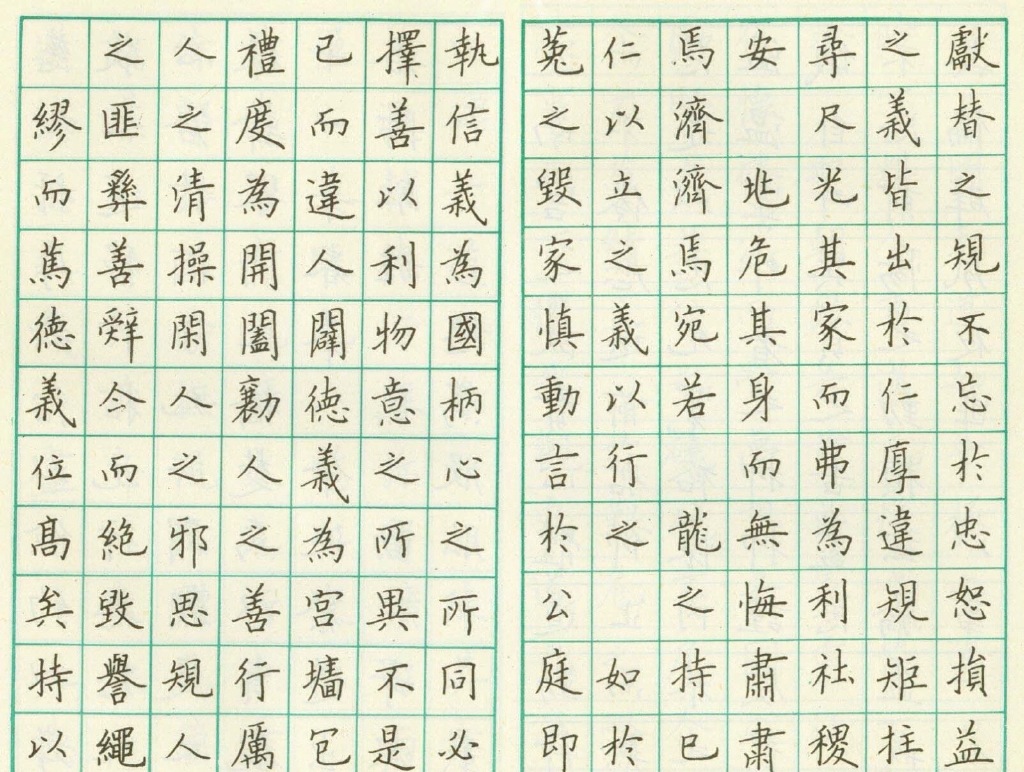 獻替之規不忘於忠恕損益
之義皆出於仁厚違規矩拄
尋尺光其家而弗為利社稷
安兆危其身而無悔肅肅
焉濟濟焉宛若龍之持已
仁以立之義以行之如於
菟之毀家慎動言於公庭即
執信義為國柄心之所同必
擇善以利物意之所異不是
已而違人闢德義為宮墻包
禮度為開闔勸人之善行厲
人之清操閑人之邪思規人
之匪彝善辭令而絕毀譽繩
繆而篤德義位高矣持以